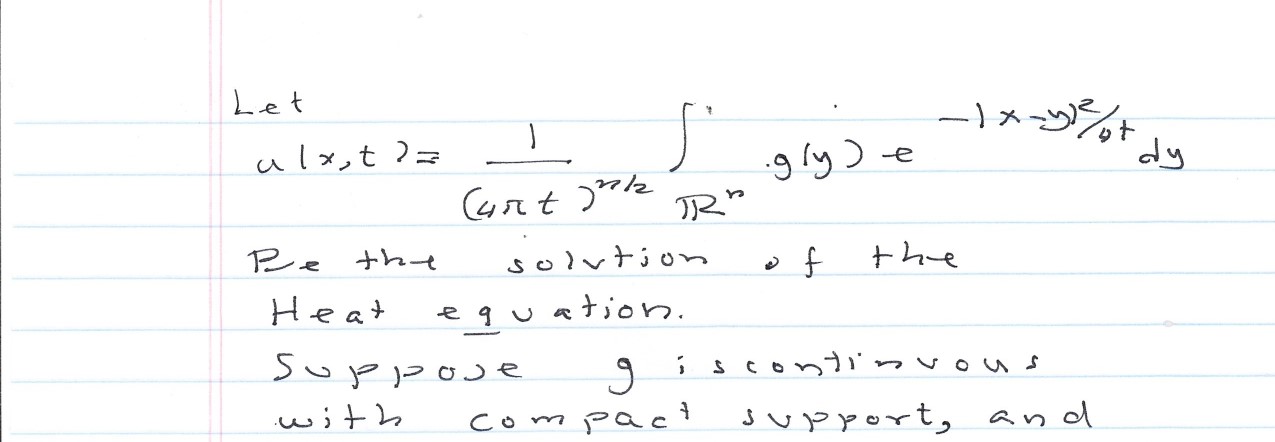 Let
u(x,t) = 1/(4πt)^{n/2} ∫_{ℝ^n} g(y) e^{-|x-y|²/4t} dy
Be the solution of the
Heat equation.
Suppose g is continuous
with compact support, and